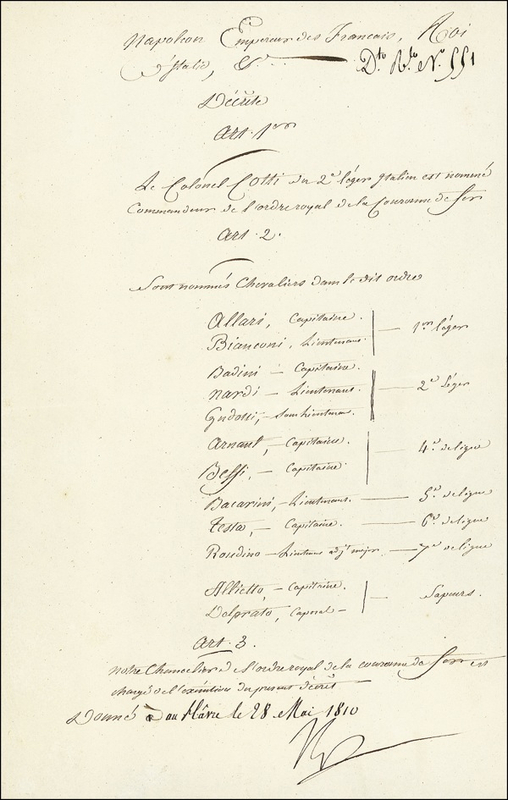 Napoleon Empereur des Francais, Roi
d'Italie, &ca
Dto Rle No 551
Décrète
Art. 1er
Le Colonel Cotti du 2e léger Italien est nommé
Commandeur de l'ordre royal de la Couronne de fer
Art. 2.
Sont nommés Chevaliers dans le dit ordre
Allari, Capitaine.
Bianconi, Lieutenant
1er léger
Badini — Capitaine.
Nardi — Lieutenant.
Guidotti, — Sous lieutenant.
2e léger
Arnaut, — Capitaine.
Bessi, — Capitaine
4e de ligne
Bacarini, — Lieutenant — 5e de ligne
Testa, — Capitaine. — 6e de ligne
Roudino — Lieutenant adjt major. — 7e de ligne
Allietto — Capitaine.
Delprato, Caporal —
Sapeurs.
Art. 3.
Notre Chancelier de l'ordre royal de la couronne de fer est
chargé de l'exécution du présent décret
Donné à au Hâvre le 28 Mai 1810
Np